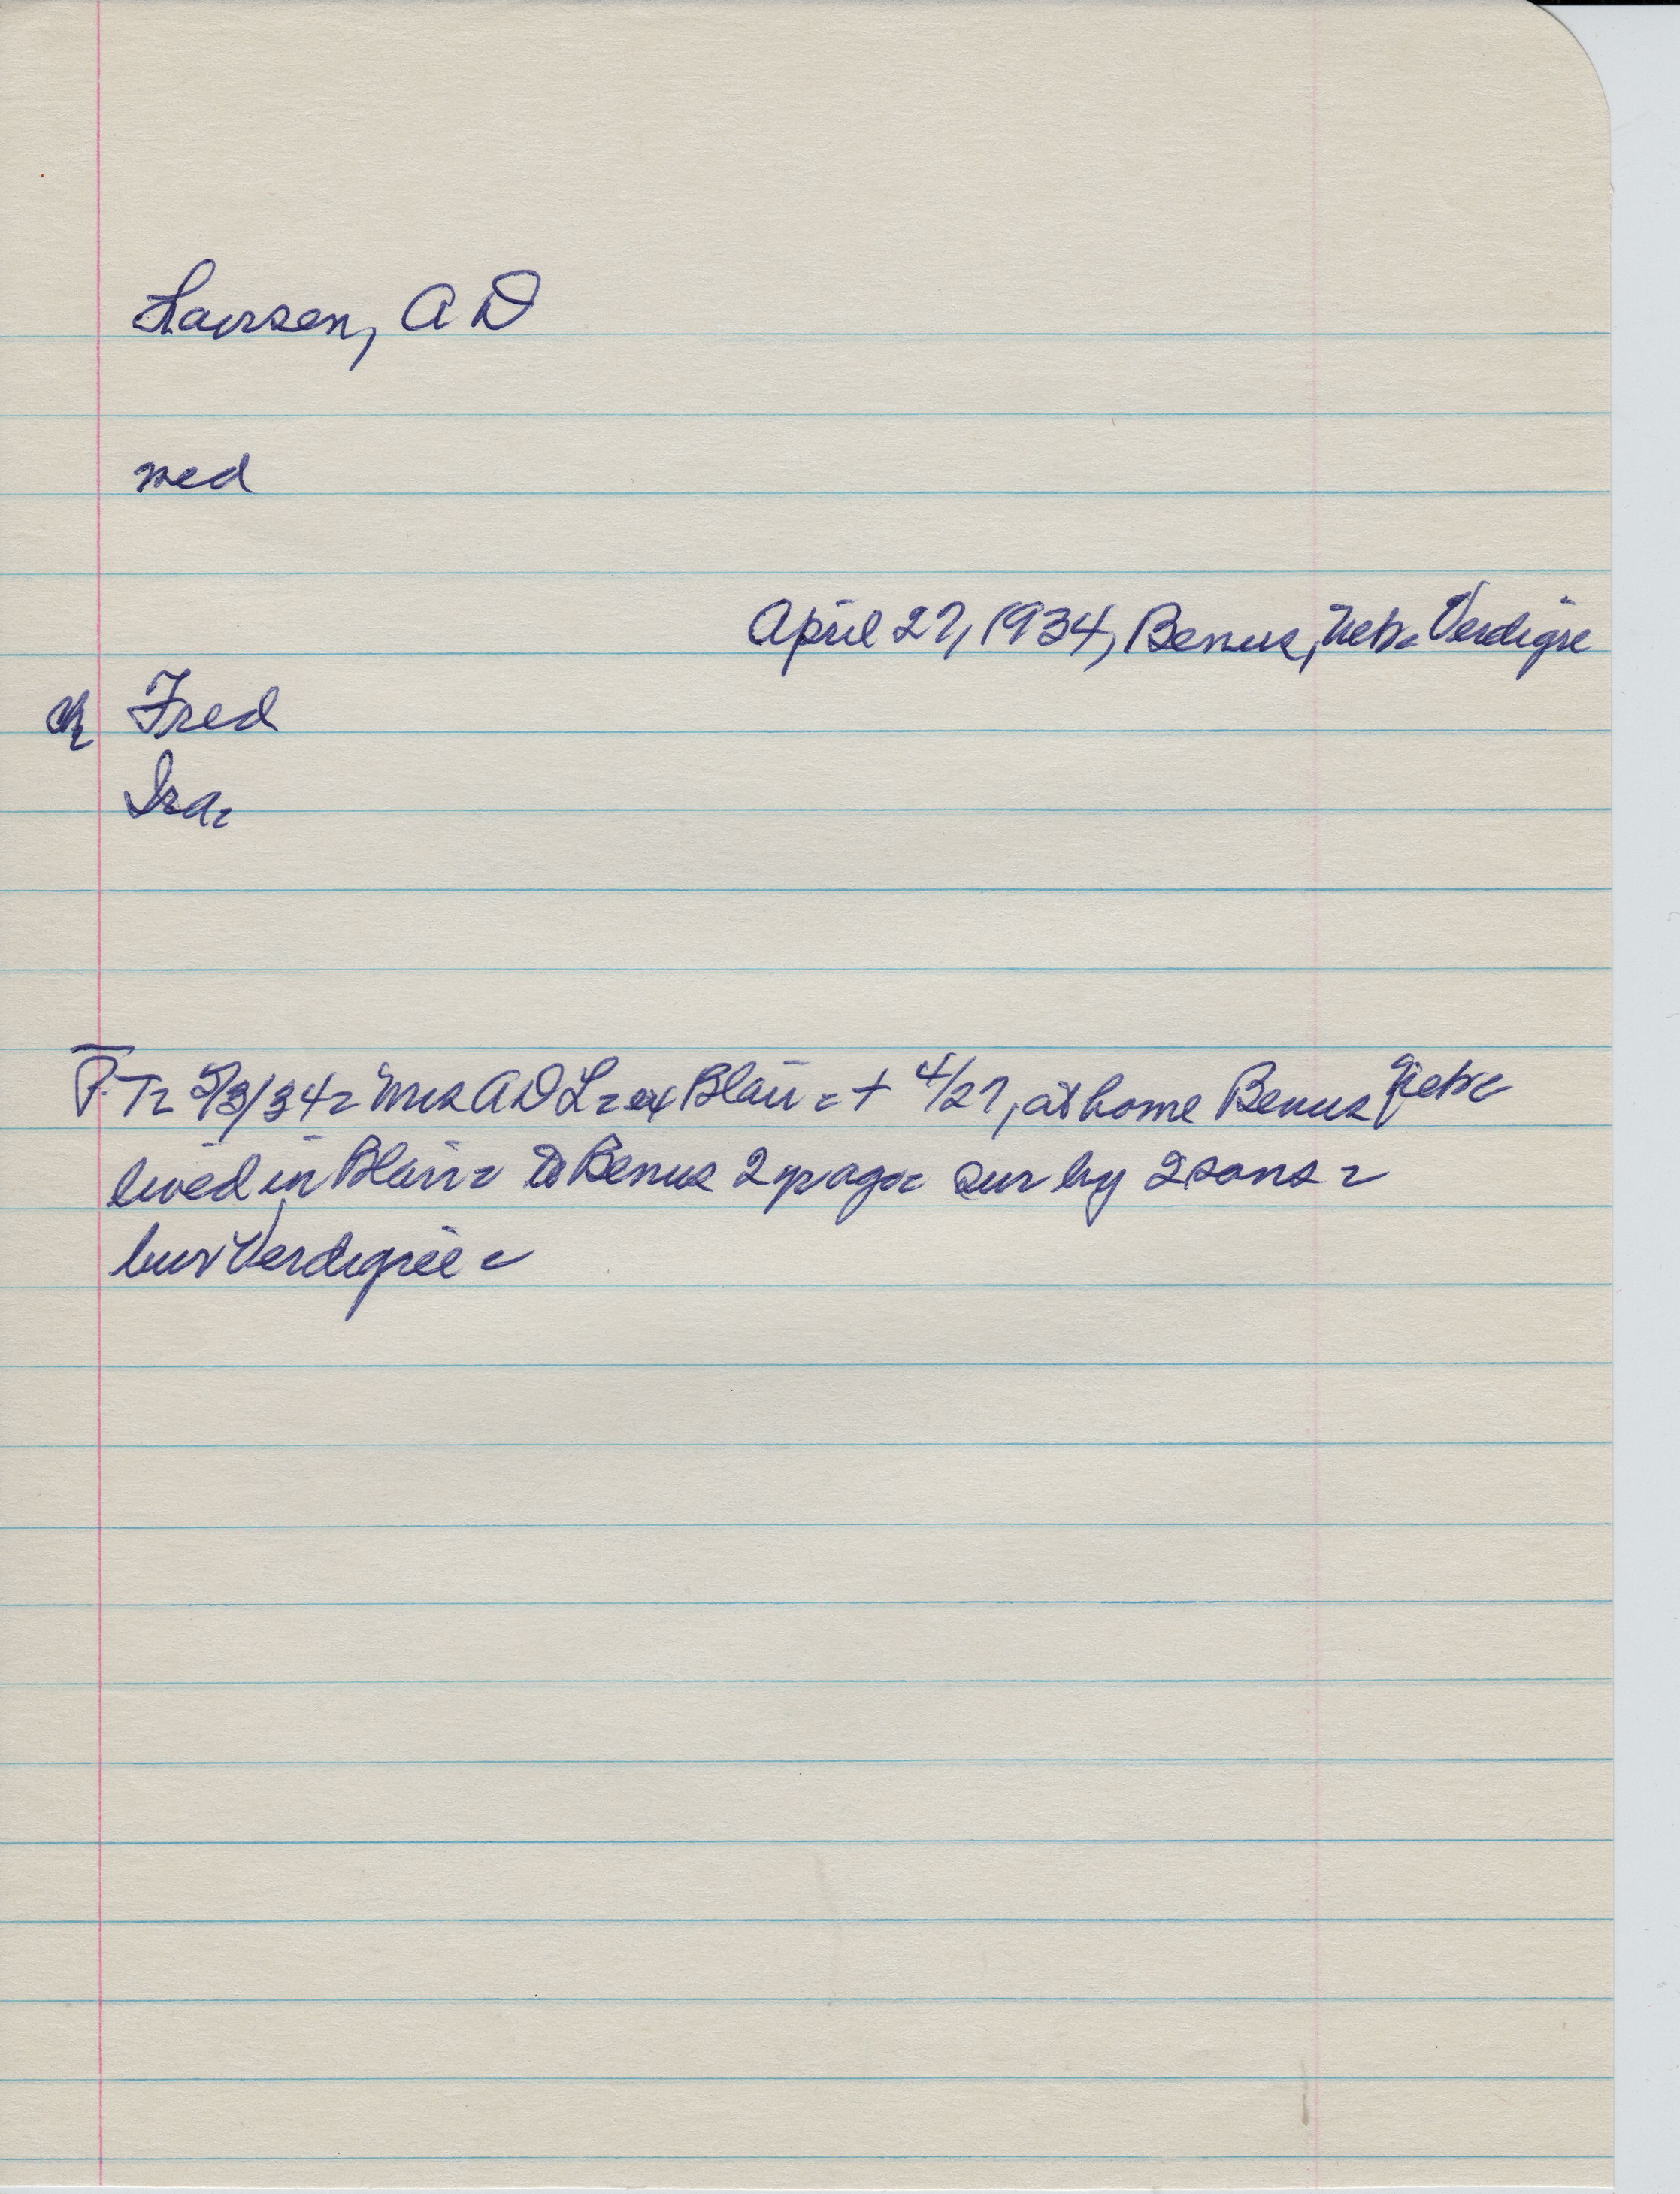 Laursen, A D
med
April 27, 1934, Benus, Nebr Verdigre
ch Fred
Ira.
P.T. 5/3/34. Mrs A D L. ex Blair. + 4/27, at home Benus Nebr
lived in Blair. to Benus 2 yr ago. sur by 2 sons.
bur Verdigree.